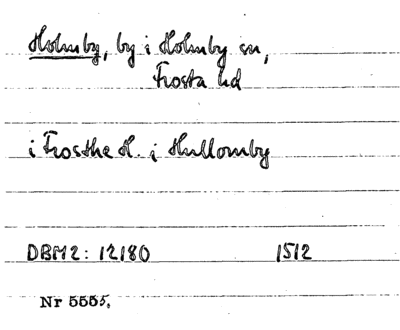 Holmby, by i Holmby sn,
Frosta hd
i Frosthe H. i Hullomby
DBM2: 12180 1512
Nr 5555.